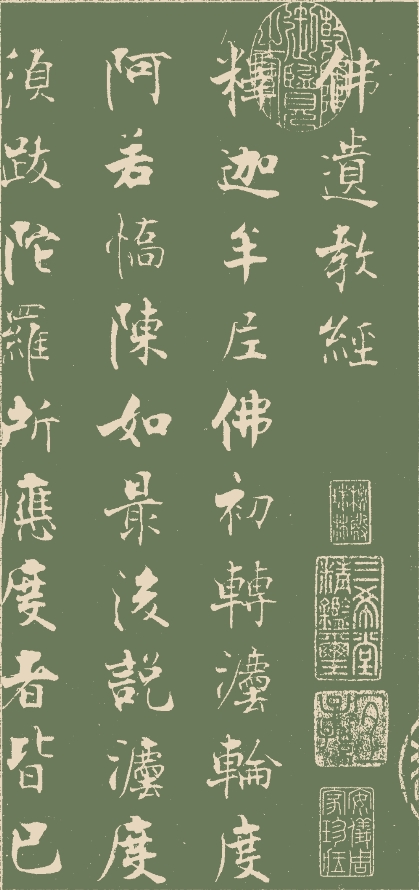 佛遺教經
釋迦牟尼佛初轉灋輪度
阿若憍陳如最後說灋度
須跋陀羅所應度者皆已
三希堂精鑑璽
宜子孫
安儀周家珍藏